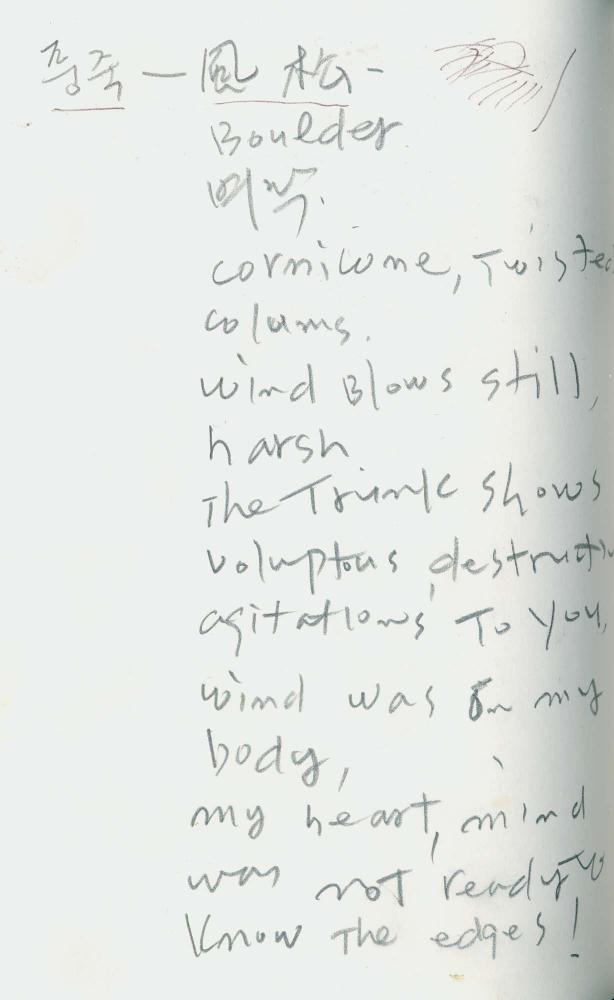 풍죽 — 風 松 -
Boulder
, Twisted
colums.
wind Blows still,
harsh
The Trunk shows
voluptous, destructi
agitations To you,
wind was on my
body,
my heart, mind
was not ready to
Know The edges!